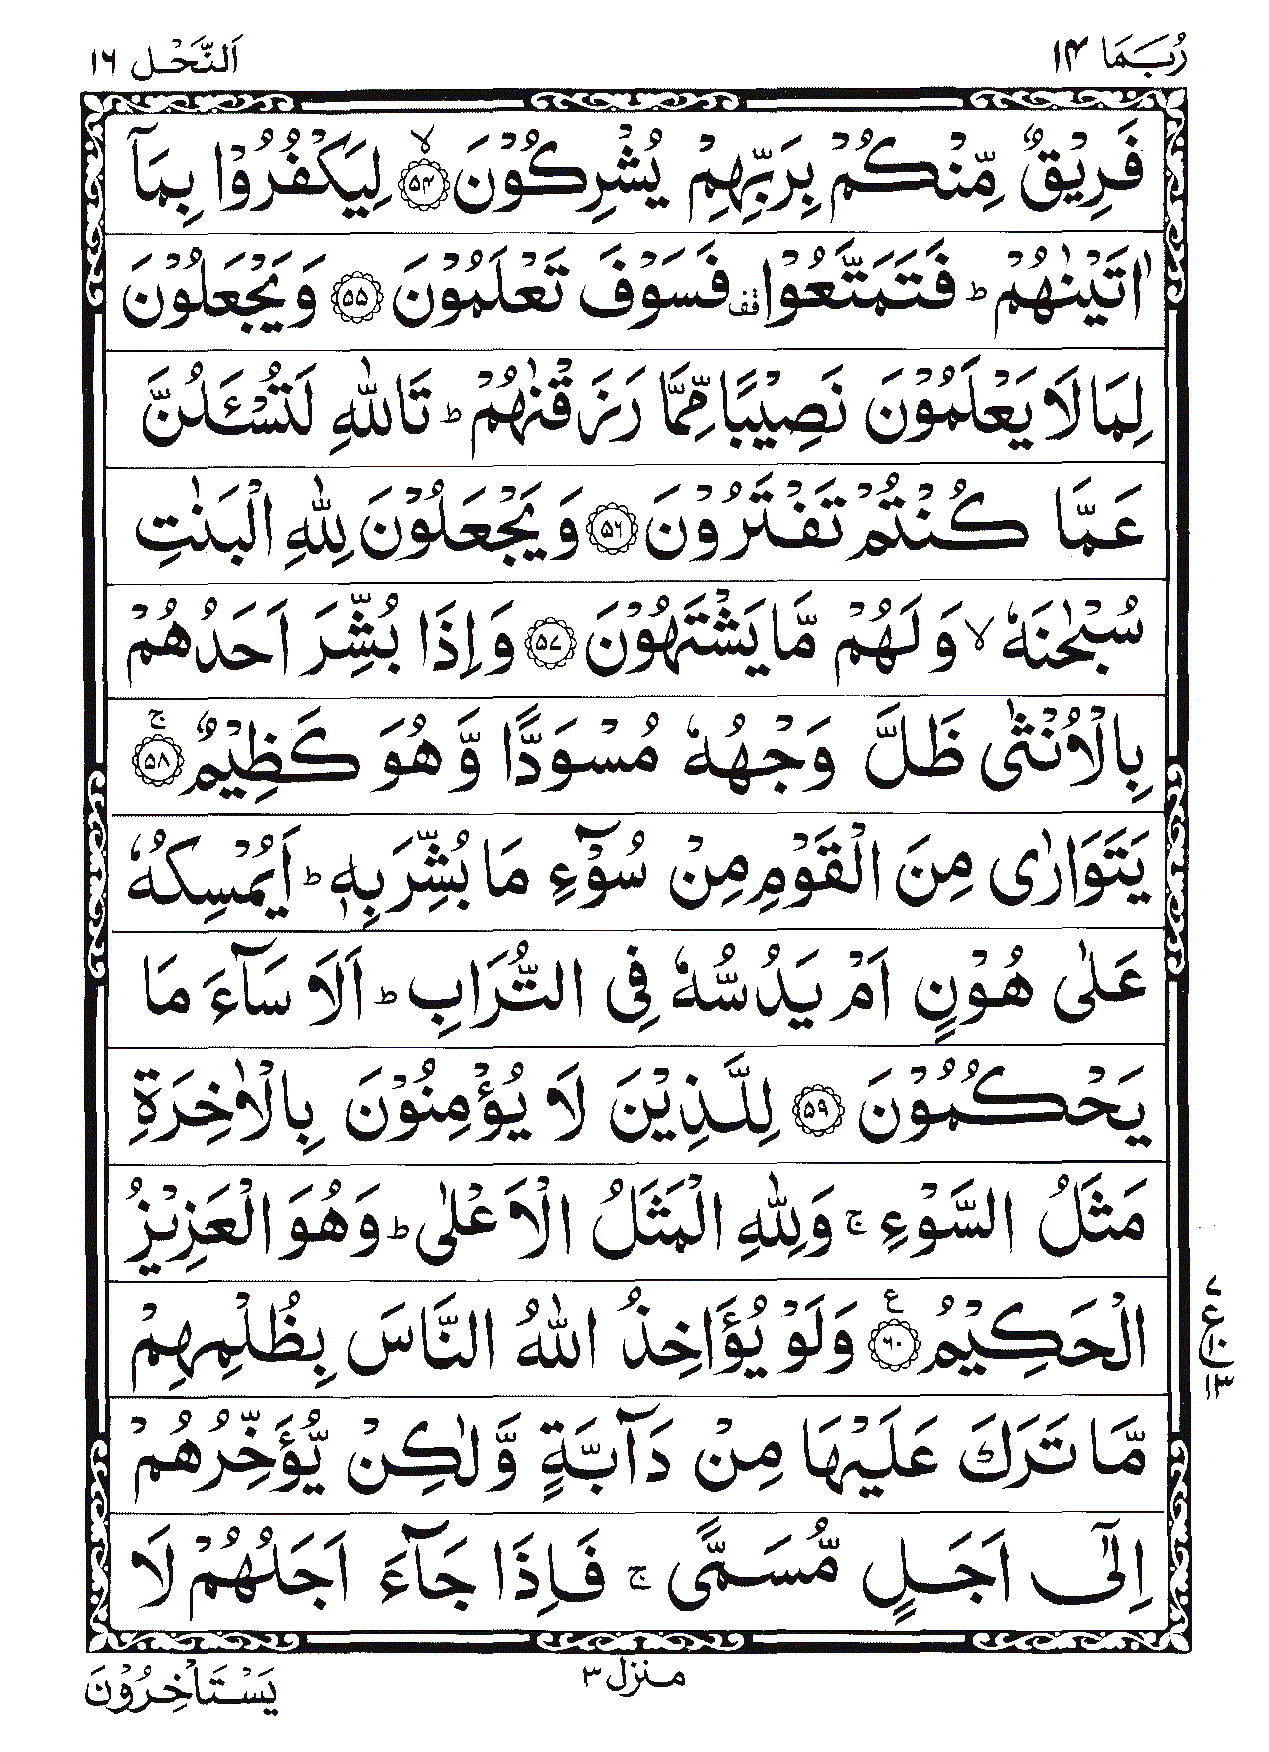 رُبَمَا ١۴
اَلنَّحْل ١٦
فَرِيْقٌ مِّنْكُمْ بِرَبِّهِمْ يُشْرِكُوْنَ ۙ‏﴿۵۴﴾ لِيَكْفُرُوْا بِمَاۤ
اٰتَيْنٰهُمْ ؕ فَتَمَتَّعُوْا ࣞ فَسَوْفَ تَعْلَمُوْنَ ﴿۵۵﴾ وَيَجْعَلُوْنَ
لِمَا لَا يَعْلَمُوْنَ نَصِيْبًا مِّمَّا رَزَقْنٰهُمْ ؕ تَاللّٰهِ لَتُسْـَٔـلُنَّ
عَمَّا كُنْتُمْ تَفْتَرُوْنَ ﴿۵۶﴾ وَيَجْعَلُوْنَ لِلّٰهِ الْبَنٰتِ
سُبْحٰنَهٗ ۙ وَلَهُمْ مَّا يَشْتَهُوْنَ ﴿۵۷﴾ وَاِذَا بُشِّرَ اَحَدُهُمْ
بِالْاُنْثٰى ظَلَّ وَجْهُهٗ مُسْوَدًّا وَّهُوَ كَظِيْمٌ ۚ‏﴿۵۸﴾
يَتَوَارٰى مِنَ الْقَوْمِ مِنْ سُوْٓءِ مَا بُشِّرَ بِهٖ ؕ اَيُمْسِكُهٗ
عَلٰى هُوْنٍ اَمْ يَدُسُّهٗ فِى التُّرَابِ ؕ اَلَا سَآءَ مَا
يَحْكُمُوْنَ ﴿۵۹﴾ لِلَّذِيْنَ لَا يُؤْمِنُوْنَ بِالْاٰخِرَةِ
مَثَلُ السَّوْءِ ۚ وَلِلّٰهِ الْمَثَلُ الْاَعْلٰى ؕ وَهُوَ الْعَزِيْزُ
الْحَكِيْمُ ﴿۶۰﴾ ع وَلَوْ يُؤَاخِذُ اللّٰهُ النَّاسَ بِظُلْمِهِمْ
٧
ع
١٠
١٣
مَّا تَرَكَ عَلَيْهَا مِنْ دَآبَّةٍ وَّلٰكِنْ يُّؤَخِّرُهُمْ
اِلٰٓى اَجَلٍ مُّسَمًّى ۚ فَاِذَا جَآءَ اَجَلُهُمْ لَا
منزل ٣
يَسْتَاْخِرُوْنَ